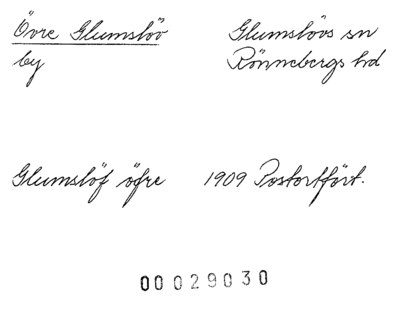 Övre Glumslöv Glumslövs sn
by Rönnebergs hd
Glumslöf öfre 1909 Postortfört.
00029030